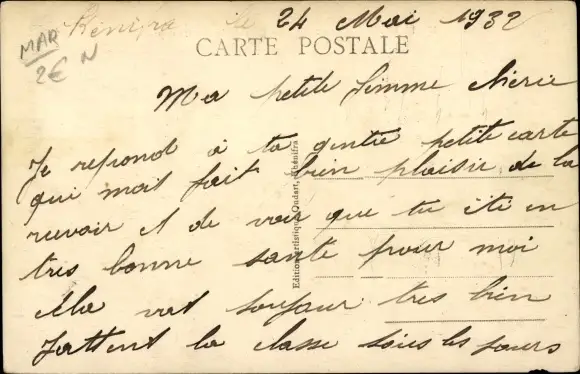 Kénifra le 24 Mai 1932
MAR
2€ N
CARTE POSTALE
Ma petite femme chérie
Je repond a ta gentie petite carte
qui mait fait bien plaisir de la
recevoir et de voir que tu éti en
tres bonne sante pour moi
cela vat toujour tres bien
Jattent la classe tous les jours
Edition Artistique Oudart, Khénifra